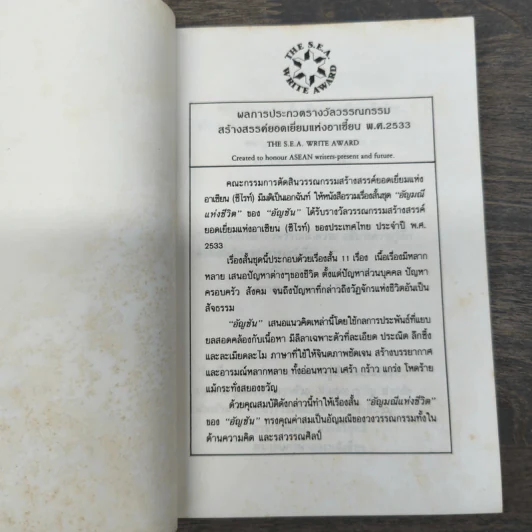 THE S.E.A.
WRITE AWARD
ผลการประกวดรางวัลวรรณกรรม
สร้างสรรค์ยอดเยี่ยมแห่งอาเซียน พ.ศ.2533
THE S.E.A. WRITE AWARD
Created to honour ASEAN writers-present and future.
คณะกรรมการตัดสินวรรณกรรมสร้างสรรค์ยอดเยี่ยมแห่ง
อาเซียน (ซีไรท์) มีมติเป็นเอกฉันท์ ให้หนังสือรวมเรื่องสั้นชุด "อัญมณี
แห่งชีวิต" ของ "อัญชัน" ได้รับรางวัลวรรณกรรมสร้างสรรค์
ยอดเยี่ยมแห่งอาเซียน (ซีไรท์) ของประเทศไทย ประจำปี พ.ศ.
2533
เรื่องสั้นชุดนี้ประกอบด้วยเรื่องสั้น 11 เรื่อง เนื้อเรื่องมีหลาก
หลาย เสนอปัญหาต่างๆของชีวิต ตั้งแต่ปัญหาส่วนบุคคล ปัญหา
ครอบครัว สังคม จนถึงปัญหาที่กล่าวถึงวัฏจักรแห่งชีวิตอันเป็น
สัจธรรม
"อัญชัน" เสนอแนวคิดเหล่านี้โดยใช้กลการประพันธ์ที่แยบ
ยลสอดคล้องกับเนื้อหา มีลีลาเฉพาะตัวที่ละเอียด ประณีต ลึกซึ้ง
และละเมียดละไม ภาษาที่ใช้ให้จินตภาพชัดเจน สร้างบรรยากาศ
และอารมณ์หลากหลาย ทั้งอ่อนหวาน เศร้า กร้าว แกร่ง โหดร้าย
แม้กระทั่งสยองขวัญ
ด้วยคุณสมบัติดังกล่าวนี้ทำให้เรื่องสั้น "อัญมณีแห่งชีวิต"
ของ "อัญชัน" ทรงคุณค่าสมเป็นอัญมณีของวงวรรณกรรมทั้งใน
ด้านความคิด และรสวรรณศิลป์